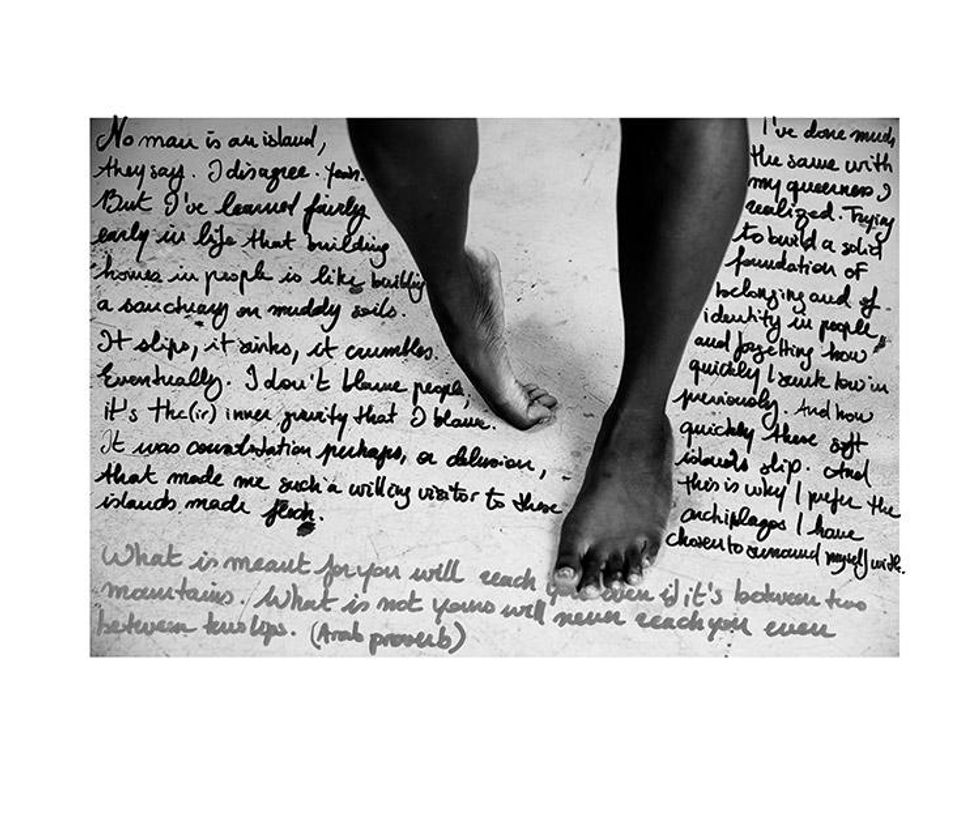 No man is an island,
they say. I disagree.
But I've learned fairly
early in life that building
homes in people is like building
a sanctuary on muddy soils.
It slips, it sinks, it crumbles.
Eventually. I don't blame people,
it's the(ir) inner gravity that I blame.
It was consolation perhaps, or delusion,
that made me such a willing visitor to these
islands made flesh.
I've done much
the same with
my queerness, I
realized. Trying
to build a solid
foundation of
belonging and of
identity in people
and forgetting how
quickly I sunk low in
previously. And how
quickly these soft
islands slip. And
this is why I prefer the
archiplagos I have
chosen to surround myself with.
What is meant for you will reach you even if it's between two
mountains. What is not yours will never reach you even
between two lips. (Arab proverb)